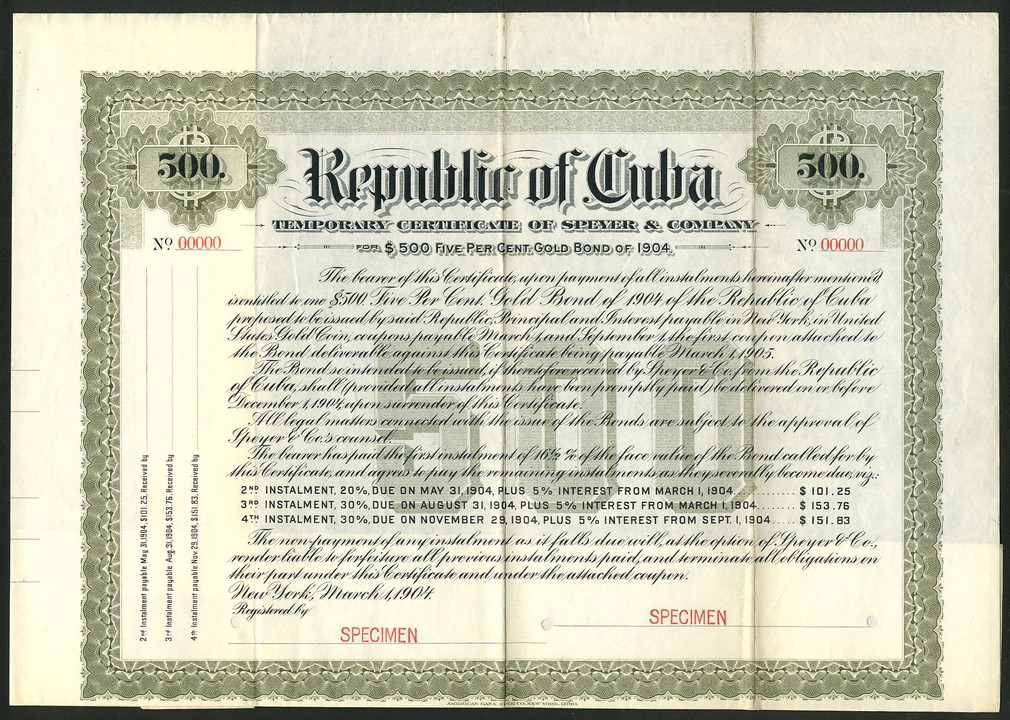 500.
500.
Republic of Cuba
TEMPORARY CERTIFICATE OF SPEYER & COMPANY
FOR $500 FIVE PER CENT. GOLD BOND OF 1904
No 00000
No 00000
The bearer of this Certificate, upon payment of all instalments hereinafter mentioned,
is entitled to one $500 Five Per Cent. Gold Bond of 1904 of the Republic of Cuba
proposed to be issued by said Republic, Principal and Interest payable in New York, in United
States Gold Coin, coupons payable March 1, and September 1, the first coupon attached to
the Bond, deliverable against this Certificate being payable March 1, 1905.
The Bond so intended to be issued, if theretofore received by Speyer & Co. from the Republic
of Cuba, shall (provided all instalments have been promptly paid) be delivered, on or before
December 1, 1904, upon surrender of this Certificate.
All legal matters connected with the issue of the Bonds are subject to the approval of
Speyer & Co's counsel.
The bearer has paid the first instalment of 16½ % of the face value of the Bond called for by
this Certificate, and agrees to pay the remaining instalments as they severally become due, viz.:
2ND INSTALMENT, 20%, DUE ON MAY 31, 1904, PLUS 5% INTEREST FROM MARCH 1, 1904 ........ $101.25
3RD INSTALMENT, 30%, DUE ON AUGUST 31, 1904, PLUS 5% INTEREST FROM MARCH 1, 1904 ..... $153.76
4TH INSTALMENT, 30%, DUE ON NOVEMBER 29, 1904, PLUS 5% INTEREST FROM SEPT. 1, 1904 .... $151.83
The non-payment of any instalment as it falls due, will, at the option of Speyer & Co.,
render liable to forfeiture all previous instalments paid, and terminate all obligations on
their part under this Certificate and under the attached coupon.
New York, March 1, 1904.
Registered by
SPECIMEN
SPECIMEN
500
2nd Instalment payable May 31, 1904, $101.25, Received by
3rd Instalment payable Aug. 31, 1904, $153.76, Received by
4th Instalment payable Nov. 29, 1904, $151.83, Received by
AMERICAN BANK NOTE CO. NEW YORK.